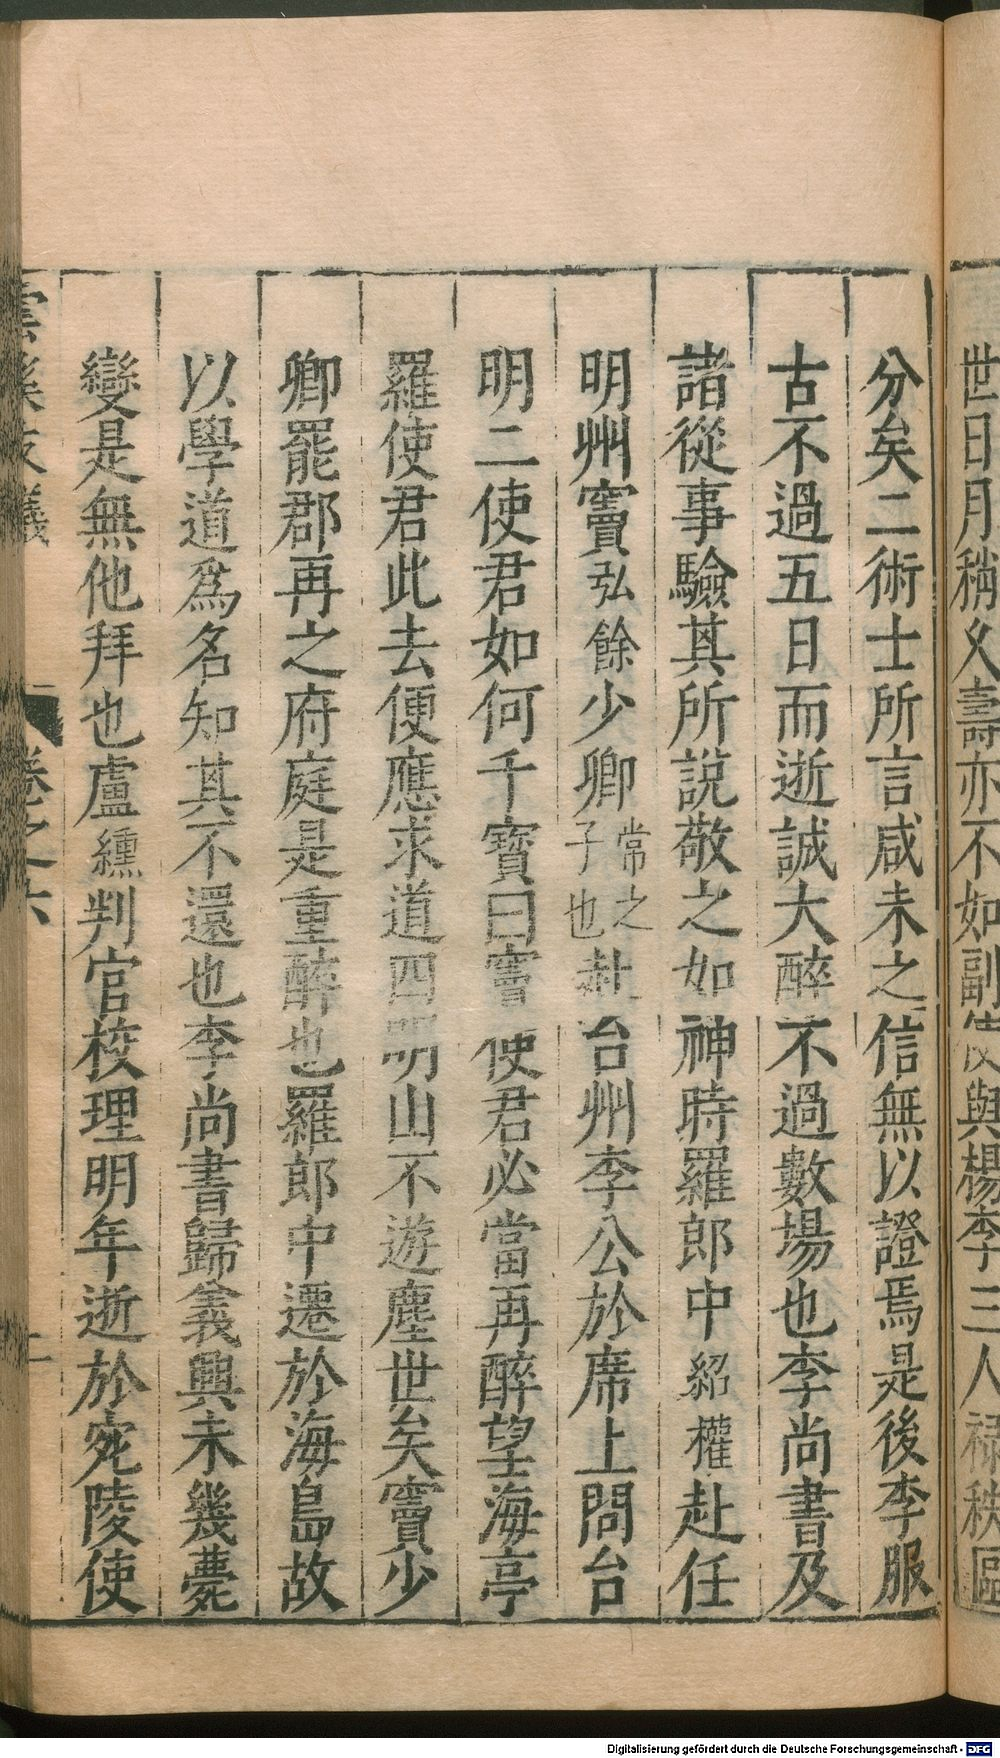 世日月稍久壽亦不如副使與楊李三人祿秩區
分矣二術士所言咸未之信無以證焉是後李服
古不過五日而逝誠大醉不過數場也李尚書及
諸從事驗其所說敬之如神時羅郎中紹權赴任
明州竇弘餘少卿常之子也赴台州李公於席上問台
明二使君如何千寶曰竇使君必當再醉望海亭
羅使君此去便應求道四明山不遊塵世矣竇少
卿罷郡再之府庭是重醉也羅郎中遷於海島故
以學道爲名知其不還也李尚書歸義興未幾薨
變是無他拜也盧纁判官校理明年逝於宛陵使
雲溪友議 卷之六
Digitalisierung gefördert durch die Deutsche Forschungsgemeinschaft - DFG